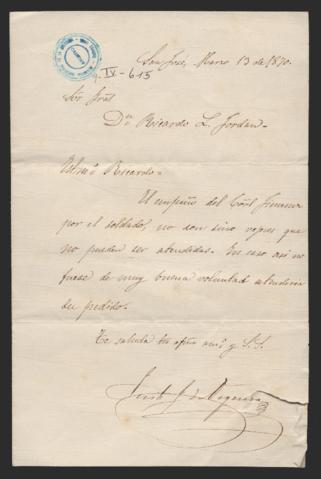 IV-615
San José, Marzo 13 de 1870.
Sor Gral
Dn Ricardo L. Jordan.
Estmo Ricardo.
El empeño del Coñl
por el soldado, no son sino vejeces que
no pueden ser atendidas. En caso así no
fuese de muy buena voluntad atenderia
su pedido.
Te saluda tu afmo am.o y S. S.
Justo J. de Urquiza